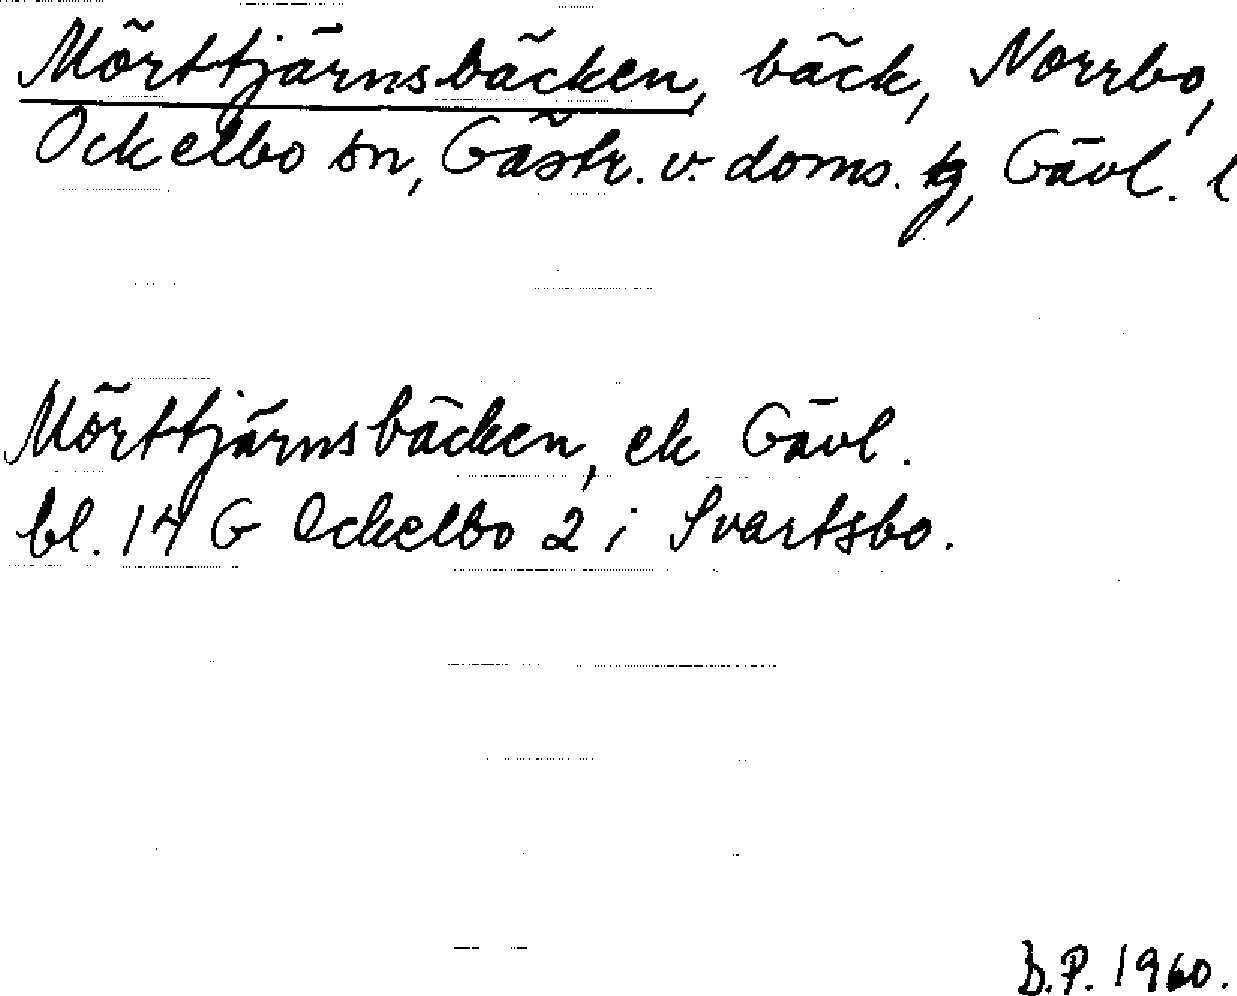 Mörttjärnsbäcken, bäck, Norrbo,
Ockelbo sn, Gästr. v. doms. tg, Gävl. l
Mörttjärnsbäcken, ek Gävl.
bl. 14 G Ockelbo 2 i Svartsbo.
D.P. 1960.